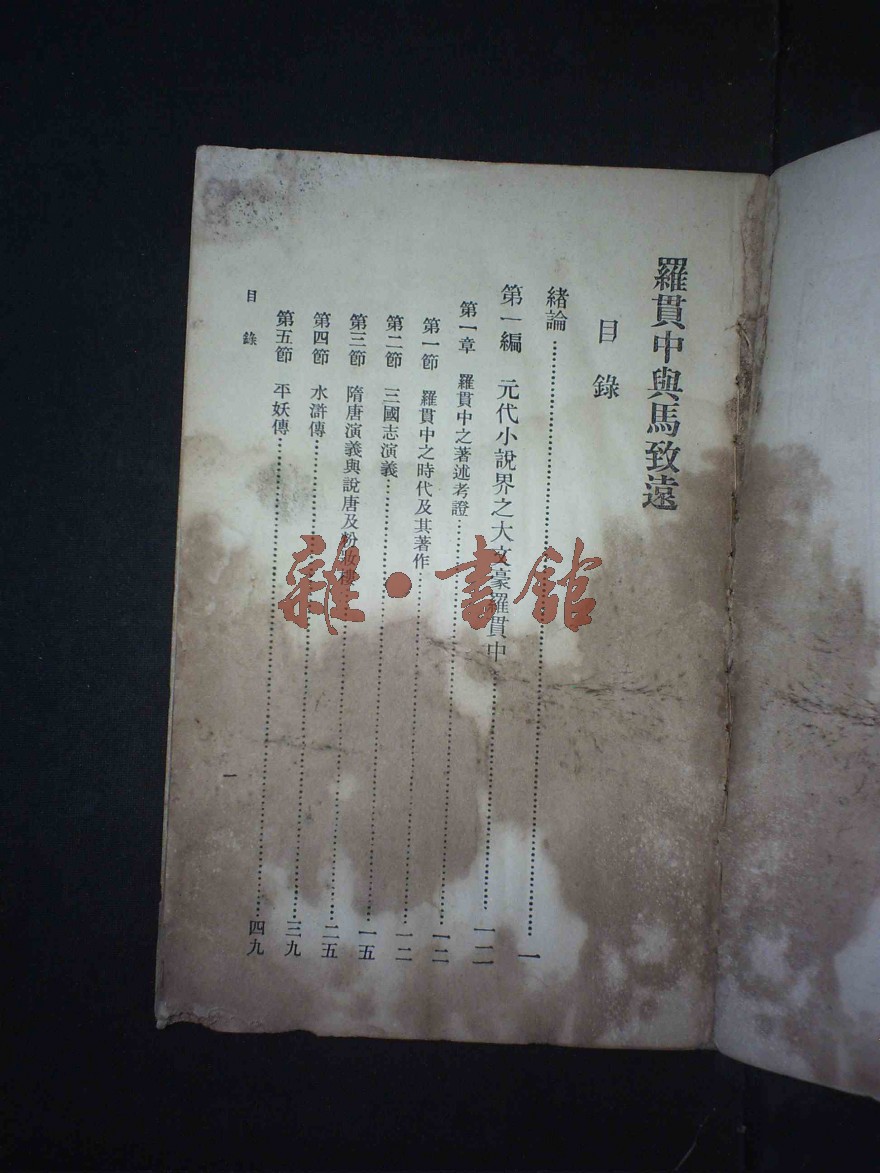 羅貫中與馬致遠
目錄
緒論……一
第一編 元代小說界之大文豪羅貫中……一二
第一章 羅貫中之著述考證……一二
第一節 羅貫中之時代及其著作……一二
第二節 三國志演義……一五
第三節 隋唐演義與說唐及粉妝樓……二五
第四節 水滸傳……三九
第五節 平妖傳……四九
目錄
一
雜·書館